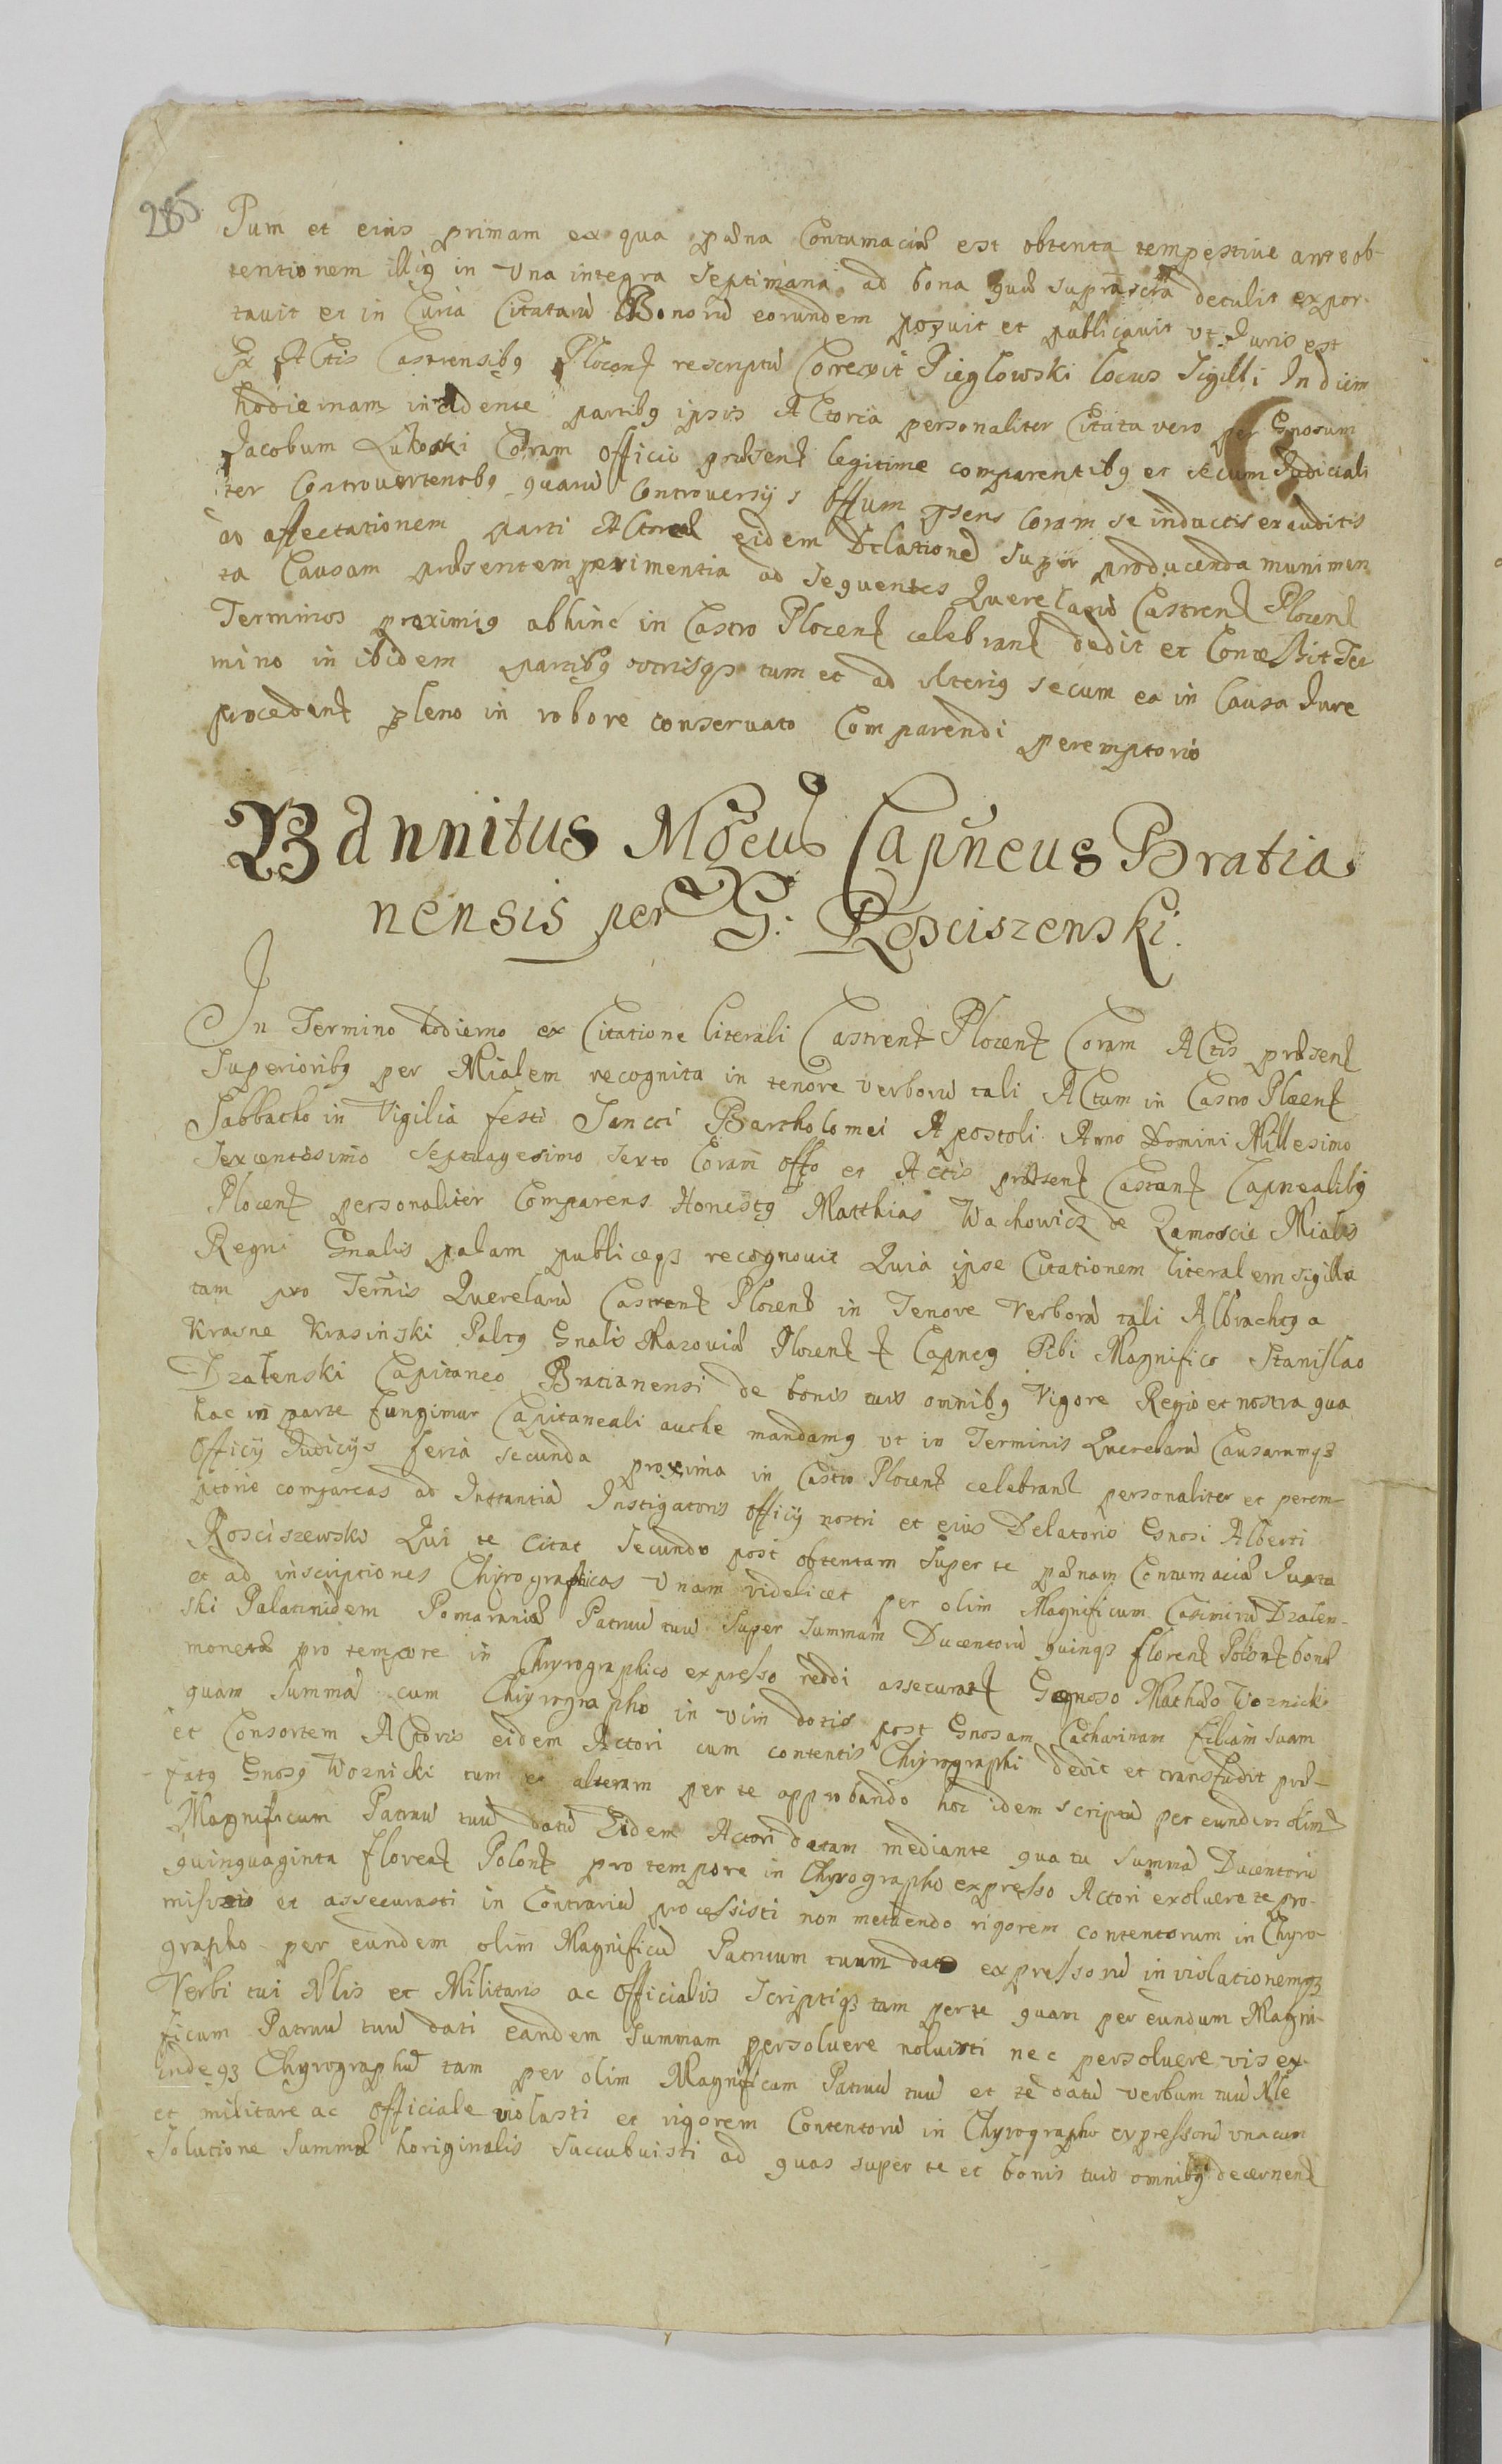 285
Pum et eius primam ex qua pœna Contumaciæ est obtenta tempestiue ante ob-
tentionem illig in Vna integra Septimana ad bona quæ suprascta detulit expor-
tauit et in Curia Citatarū Bonorū eorundem posuit et publicauit vt Juris est
Ex Actis Castrensibg Plocent rescriptū Correxit Pieglowski locus Sigilli In diem
hodiernam incidente partibg ipsis Actorea personaliter Citata vero per Gnosum
Jacobum Lukoski Coram Officio præsent legitime comparentibg et secum Judiciali
ter Controuertentibg quarū Controuersijs Offum psens Coram se inductis exauditis
ad affectationem parti Actoreæ eidem Dilationē super producenda munimen
ta Causam præsentem perimentia ad sequentes Querelarū Castrent Plocent
Terminos proximig abhinc in Castro Plocent celebrant dedit et Concessit Ter
mino in ibidem partibg vtrisqз tum et ad vlterig secum ea in Causa Jure
procedent pleno in robore conseruato Comparendi peremptorio
Bannitus Mgcus Capneus Bratia
nensis per G: Rosciszewski.
In Termino hodierno ex Citatione literali Castrent Plocent Coram Actis præsent
Superioribg per Mialem recognita in tenore verborū tali Actum in Castro Plocent
Sabbatho in Vigilia festi Sancti Bartholomei Apostoli Anno Domini Millesimo
Sexcentesimo Septuagesimo Sexto Coram offo et Actis præsent Castrent Capnealibg
Plocent personaliter Comparens Honestg Matthias Wachowicz de Zamoscie Mialis
Regni Gnalis palam publiceqз recognouit Quia ipse Citationem literalem sigilla
tam pro Ternis Querelarū Castrent Plocent in Tenore Verborū tali Albrachtg a
Krasne Krasinski Paltg Gnalis Mazouiæ Plocent t Capneg Tibi Magnifico Stanislao
Dzalenski Capitaneo Bratianensi de bonis tuis omnibg Vigore Regio et nostra qua
hac in parte fungimur Capitaneali authe mandamg vt in Terminis Querelarū Causarumqз
Officij Judicijs feria secunda proxima in Castro Plocent celebrant personaliter et perem-
ptorie compareas ad Instantiā Instigatoris officij nostri et eius Delatoris Gnosi Alberti
Rosciszewski Qui te Citat Secundo post obtentam super te pœnam Contumaciæ Juxta
et ad inscriptiones Chyrographicas Vnam videlicet per olim Magnificum Casimirū Dzalen-
ski Palatinidem Pomaraniæ Patruū tuū Super Summam Ducentorū quinqз florent Polont bonæ
monetæ pro tempore in Chyrographico expresso reddi assecurat Gnoso Mathæo Woznicki
quam Summā cum Chyrographo in vim dotis post Gnosam Catharinam filiam suam
et Consortem Actoris eidem Actori cum contentis Chyrographi dedit et transfudit præ-
fatg Gnosg Woznicki tum et alteram per te approbando hoc idem scriptū per eundem olim
Magnificum Patruū tuū datū Eidem Actori datam mediante qua tu Summā Ducentorū
quinquaginta florent Polont pro tempore in Chyrographo expresso Actori exoluere te pro-
misisti et assecurasti in Contrariū processisti non metuendo rigorem contentorum in Chyro-
grapho per eundem olim Magnificū Patruum tuum dato expressorū in violationemqз
Verbi tui Nlis et Militaris ac Officialis Scriptiqз tam per te quam per eundum Magni-
ficum Patruū tuū dati eandem Summam persoluere noluisti nec persoluere vis ex
indeqз Chyrographū tam per olim Magnificum Patruū tuū et te datū verbum tuū Nle
et militare ac Officiale violasti et rigorem Contentorū in Chyrographo expressorū vna cum
Solutione Summæ horiginalis Succubuisti ad quas super te et bonis tuis omnibg decernent